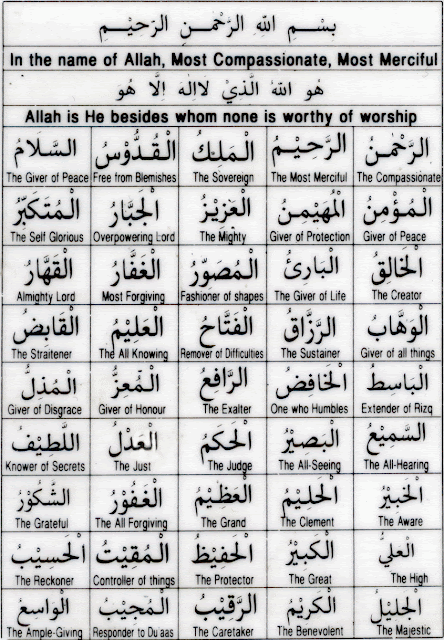 بِسْمِ اللهِ الرَّحْمٰنِ الرَّحِيْمِ
In the name of Allah, Most Compassionate, Most Merciful
هُوَ اللهُ الَّذِيْ لَااِلٰهَ اِلَّا هُوَ
Allah is He besides whom none is worthy of worship
الرَّحْمٰنُ
The Compassionate
الرَّحِيْمُ
The Most Merciful
الْمَلِكُ
The Sovereign
الْقُدُّوْسُ
Free from Blemishes
السَّلَامُ
The Giver of Peace
الْمُؤْمِنُ
Giver of Peace
الْمُهَيْمِنُ
Giver of Protection
الْعَزِيْزُ
The Mighty
الْجَبَّارُ
Overpowering Lord
الْمُتَكَبِّرُ
The Self Glorious
الْخَالِقُ
The Creator
الْبَارِئُ
The Giver of Life
الْمُصَوِّرُ
Fashioner of shapes
الْغَفَّارُ
Most Forgiving
الْقَهَّارُ
Almighty Lord
الْوَهَّابُ
Giver of all things
الرَّزَّاقُ
The Sustainer
الْفَتَّاحُ
Remover of Difficulties
الْعَلِيْمُ
The All Knowing
الْقَابِضُ
The Straitener
الْبَاسِطُ
Extender of Rizq
الْخَافِضُ
One who Humbles
الرَّافِعُ
The Exalter
الْمُعِزُّ
Giver of Honour
الْمُذِلُّ
Giver of Disgrace
السَّمِيْعُ
The All-Hearing
الْبَصِيْرُ
The All-Seeing
الْحَكَمُ
The Judge
الْعَدْلُ
The Just
اللَّطِيْفُ
Knower of Secrets
الْخَبِيْرُ
The Aware
الْحَلِيْمُ
The Clement
الْعَظِيْمُ
The Grand
الْغَفُوْرُ
The All Forgiving
الشَّكُوْرُ
The Grateful
الْعَلِيُّ
The High
الْكَبِيْرُ
The Great
الْحَفِيْظُ
The Protector
الْمُقِيْتُ
Controller of things
الْحَسِيْبُ
The Reckoner
الْجَلِيْلُ
The Majestic
الْكَرِيْمُ
The Benevolent
الرَّقِيْبُ
The Caretaker
الْمُجِيْبُ
Responder to Du'aas
الْوَاسِعُ
The Ample-Giving